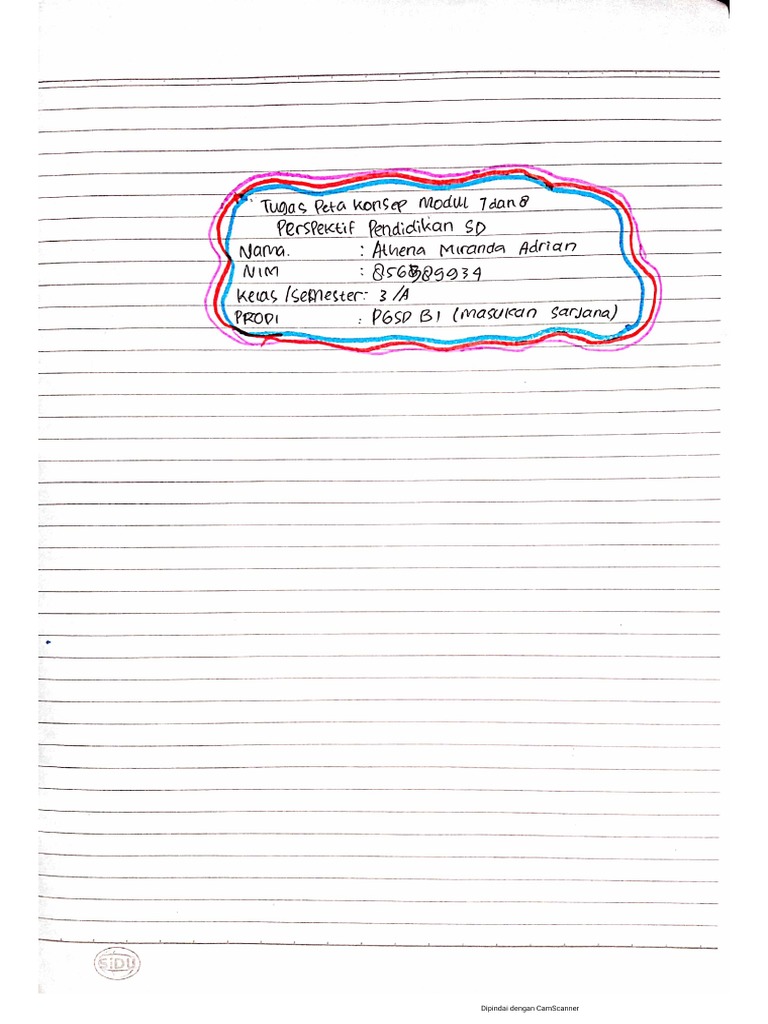 Tugas Peta Konsep Modul 7 dan 8
Perspektif Pendidikan SD
Nama. : Athena Miranda Adrian
NIM : 856989934
Kelas /semester: 3 /A
PRODI : PGSD BI (masukan sarjana)
SiDU
Dipindai dengan CamScanner